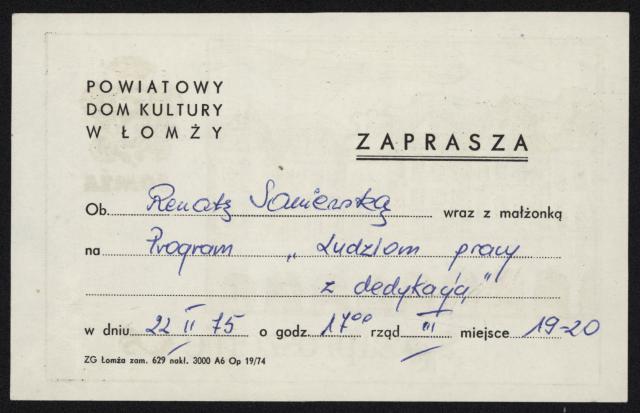 POWIATOWY
DOM KULTURY
W ŁOMŻY
ZAPRASZA
Ob. Renatę wraz z małżonką
na Program „Ludziom pracy
z dedykacją"
w dniu 22 II 75 o godz. 17⁰⁰ rząd III miejsce 19-20
ZG Łomża zam. 629 nakł. 3000 A6 Op 19/74